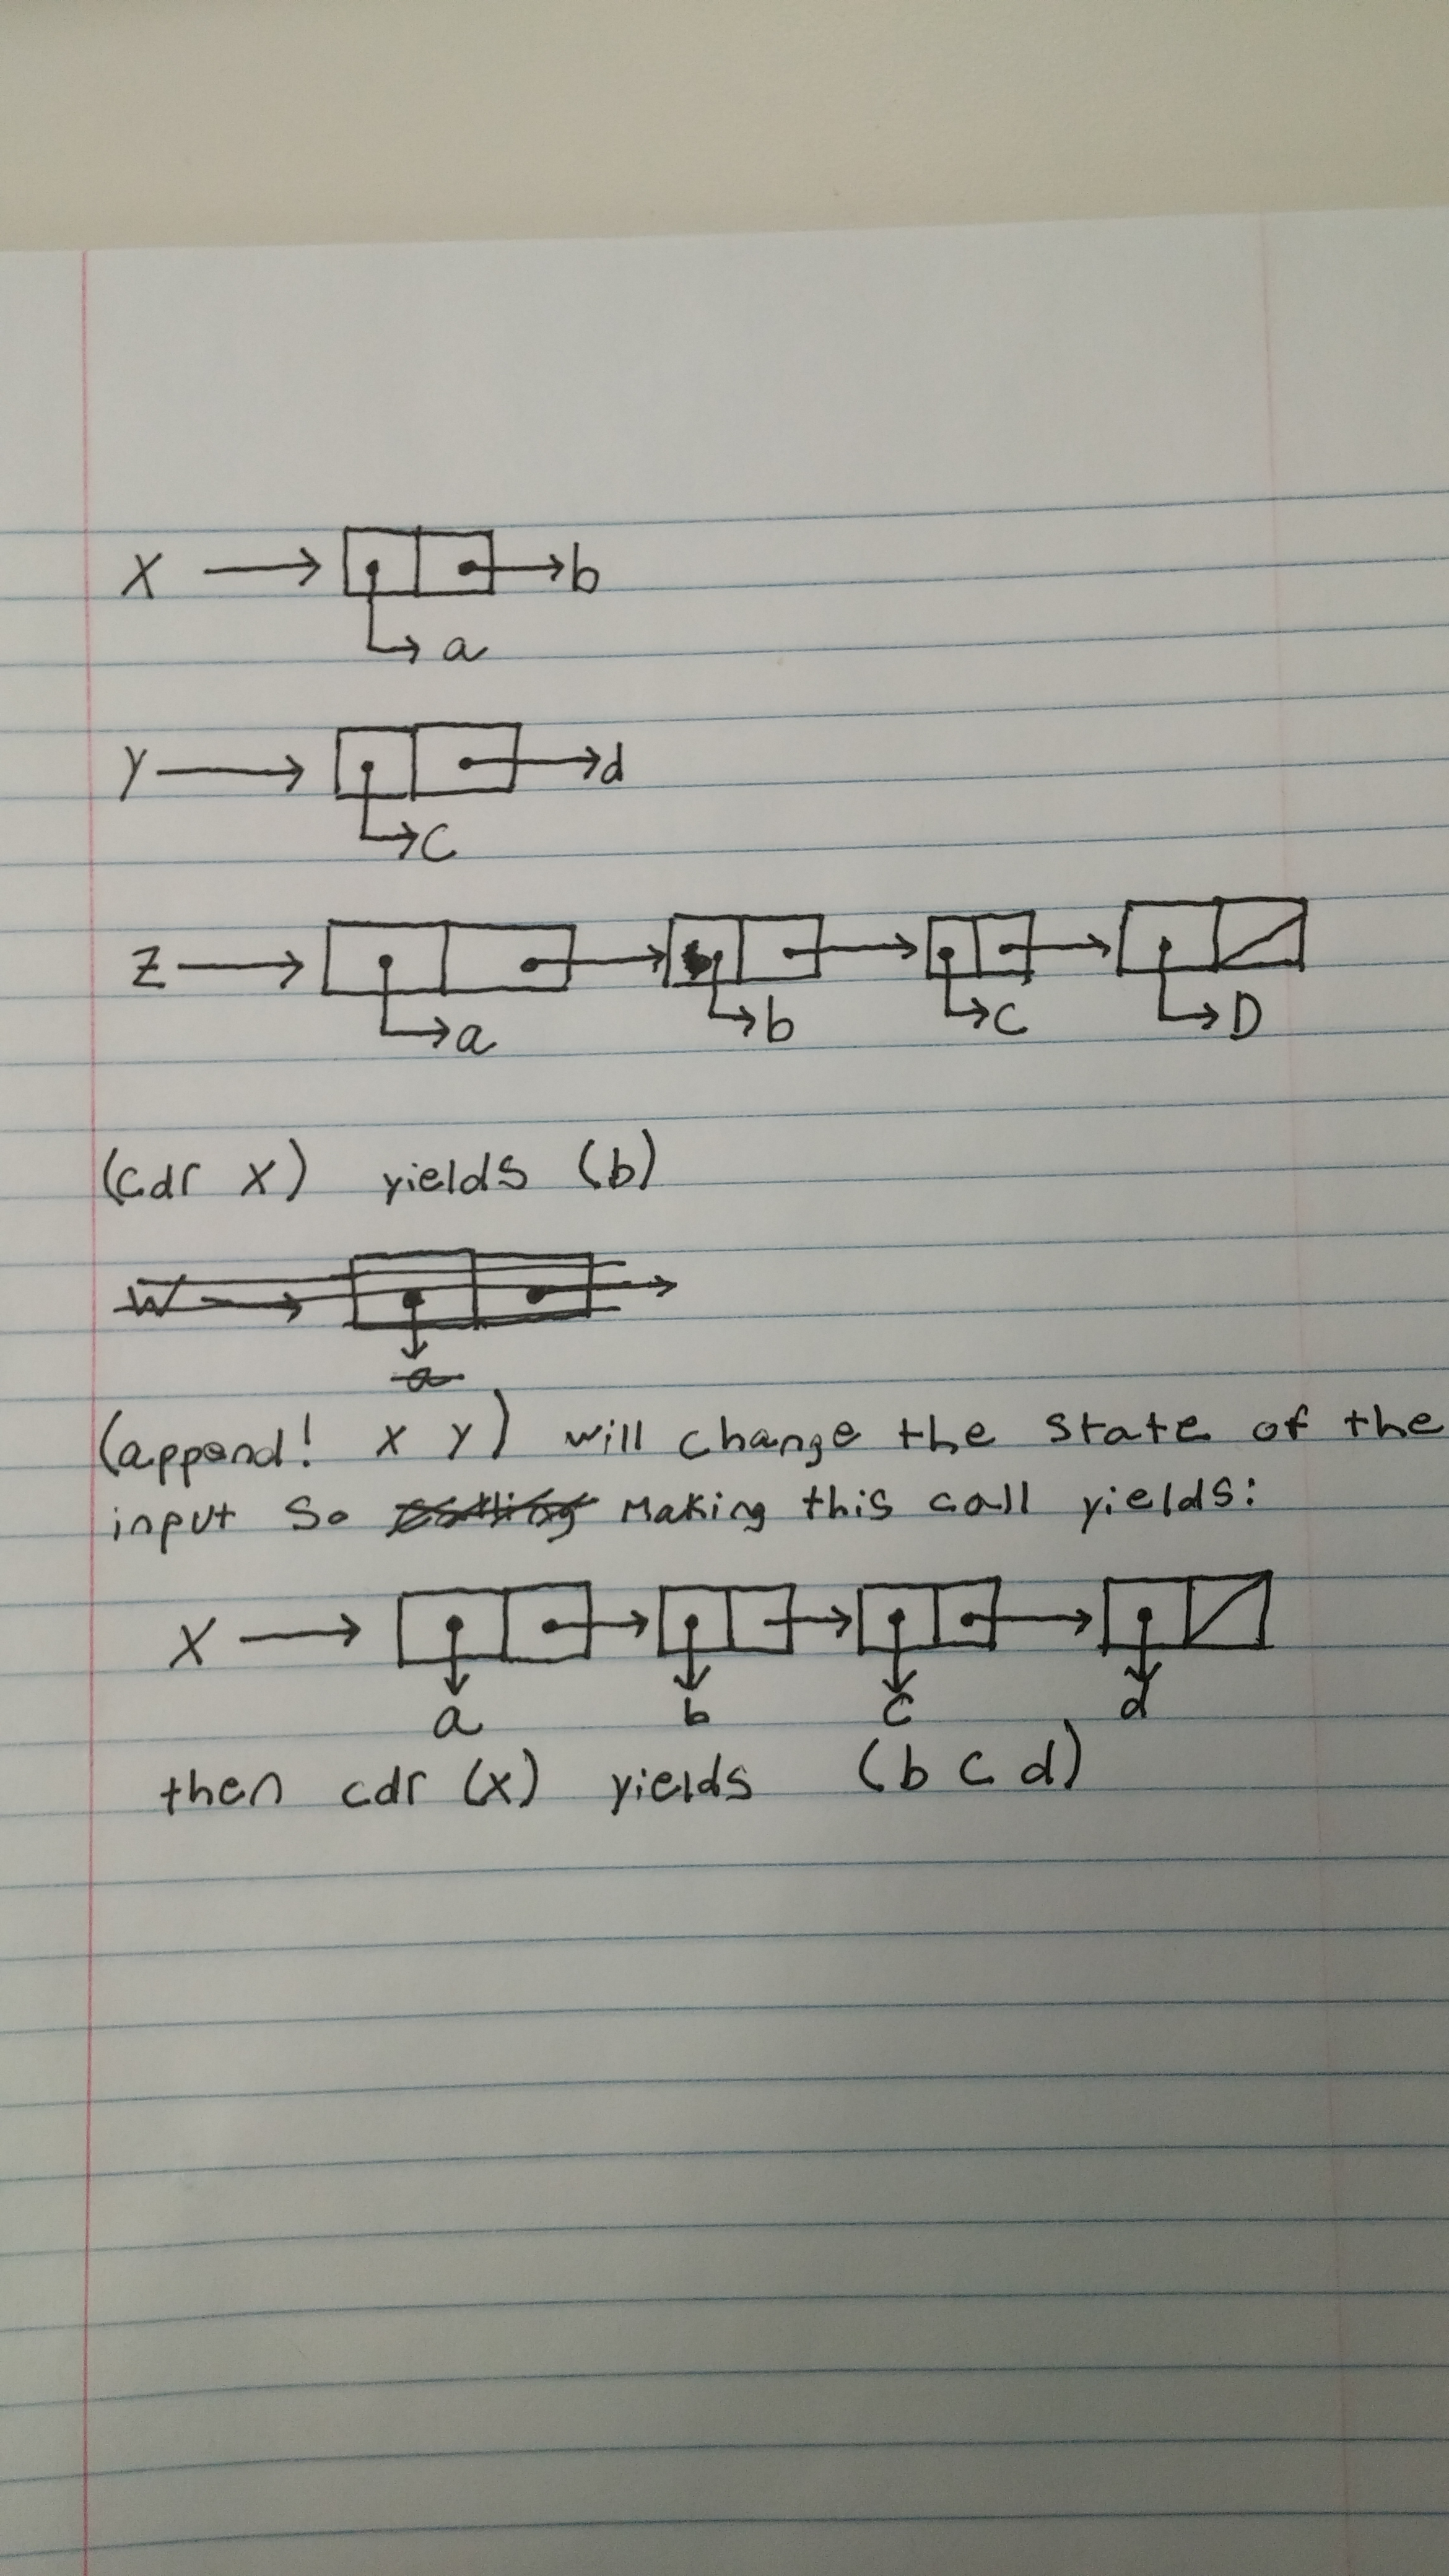 X b
a
Y d
C
Z
a b C D
(cdr x) yields (b)
W
a
(append! x y) will change the state of the
input so making this call yields:
X
a b c d
then cdr (x) yields (b c d)